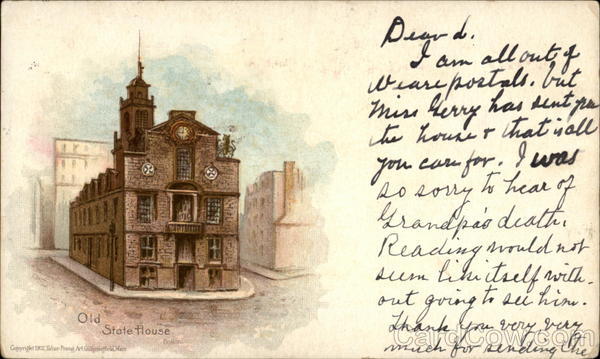 Dear d.
I am all out of
Weare postals. but
Miss Gerry has sent you
the house & that is all
you care for. I was
so sorry to hear of
Grandpa's death.
Reading would not
seem like itself with-
out going to see him.
Thank you very very
much for sending the
Old
State House
Boston.
Copyright 1902, Taber-Prang Art Co. Springfield, Mass
CardCow.com